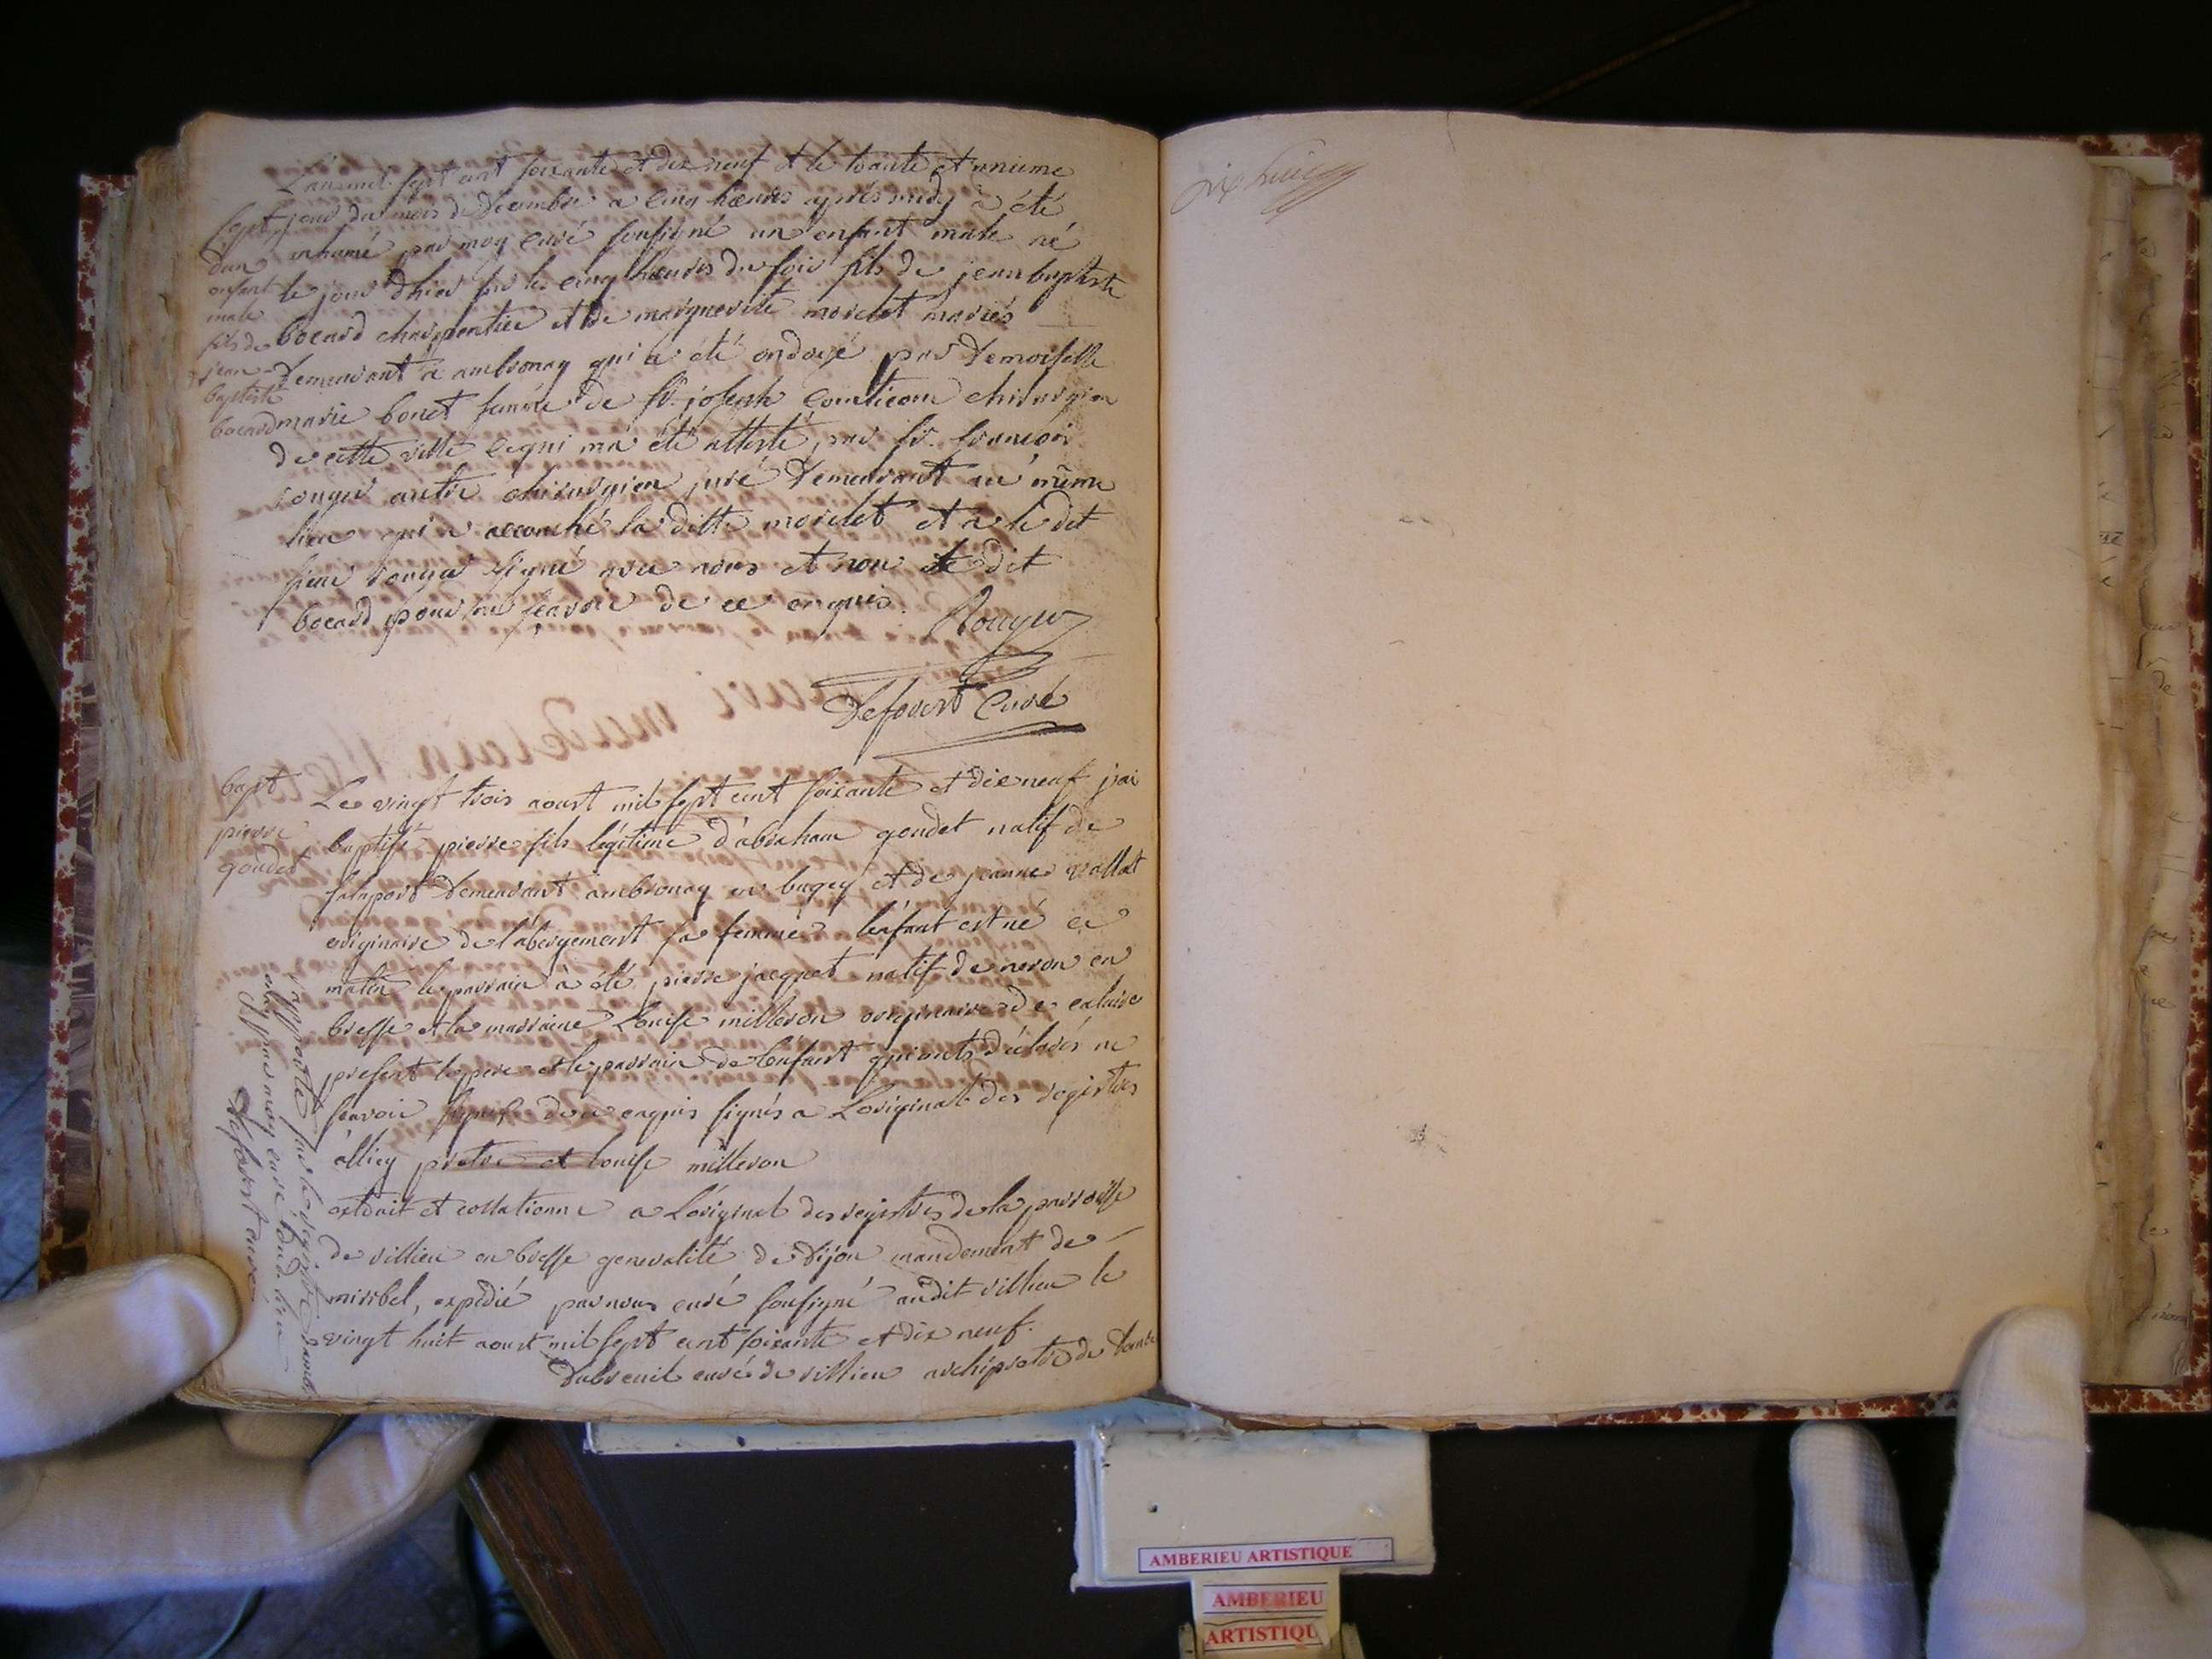 L'an mil sept cent soixante et dix neuf et le trante et unieme
jour du mois de decembre a cinq heures après midy à été
inhumé par moy curé soussigné un enfant male né
le jour d'hier sur les cinq heures du soir fils de jean baptiste
bocard charpentier et de marguerite morelet mariés
demeurant a ambronay qui a été ondoyé par demoiselle
marie bonet femme de sr. joseph chirurgien
de cette ville ce qui m'a été attesté par sr. françois
rouyer autre chirurgien juré demeurant au même
lieu qui a accouché la ditte morelet et a le dit
sieur rouyer signé avec nous et non le dit
bocard pour ne sçavoir de ce enquis. Rouyer
Defavert Curé
sept
d'un
enfant
male
fils de
jean
baptiste
bocard
bapt
pierre
goudet
Le vingt trois aoust mil sept cent soixante et dix neuf j'ai
baptisé pierre fils légitime d'abraham goudet natif de
demeurant ambronay en bugey et de jeanne vallat
originaire de l'abergement sa femme l'enfant est né ce
matin le parrain à été pierre jacquet natif de neron en
bresse et la marraine Louise milleron originaire de caluire
present le pere et le parrain de l'enfant qui ont déclarés ne
sçavoir signer de ce enquis signés a L'original des registres
alliey pretre et louise milleron
extrait et collationné a L'original des registres de la parroisse
de villieu en bresse generalité de dijon mandement de
miribel, expedié par nous curé soussigné audit villieu le
vingt huit aoust mil sept cent soixante et dix neuf.
Dubreuil curé de villieu archipretre de
rapporté sur le registre d'ambr.
par moy curé dud. lieu
Defavert curé
dix huit
AMBERIEU ARTISTIQUE
AMBERIEU
ARTISTIQU